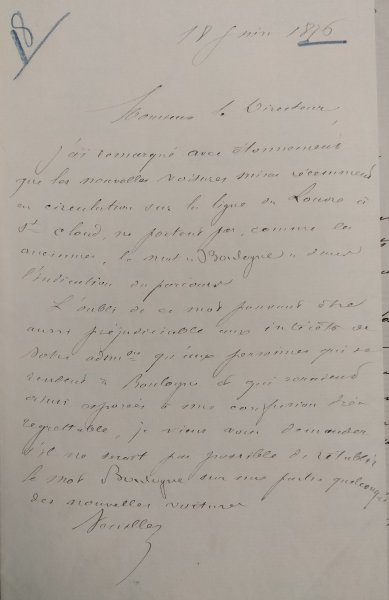 8
18 Juin 1896
Monsieur le Directeur,
J'ai remarqué avec étonnement
que les nouvelles voitures mises récemment
en circulation sur la ligne du Louvre à
St Cloud, ne portent pas, comme les
anciennes, le mot "Boulogne" dans
l'indication du parcours
L'oubli de ce mot pouvant être
aussi préjudiciable aux intérêts de
votre admon qu'aux personnes qui se
rendent à Boulogne et qui seraient
ainsi exposées à une confusion très
regrettable, je viens vous demander
s'il ne serait pas possible de rétablir
le mot Boulogne sur une partie quelconque
des nouvelles voitures
Veuillez